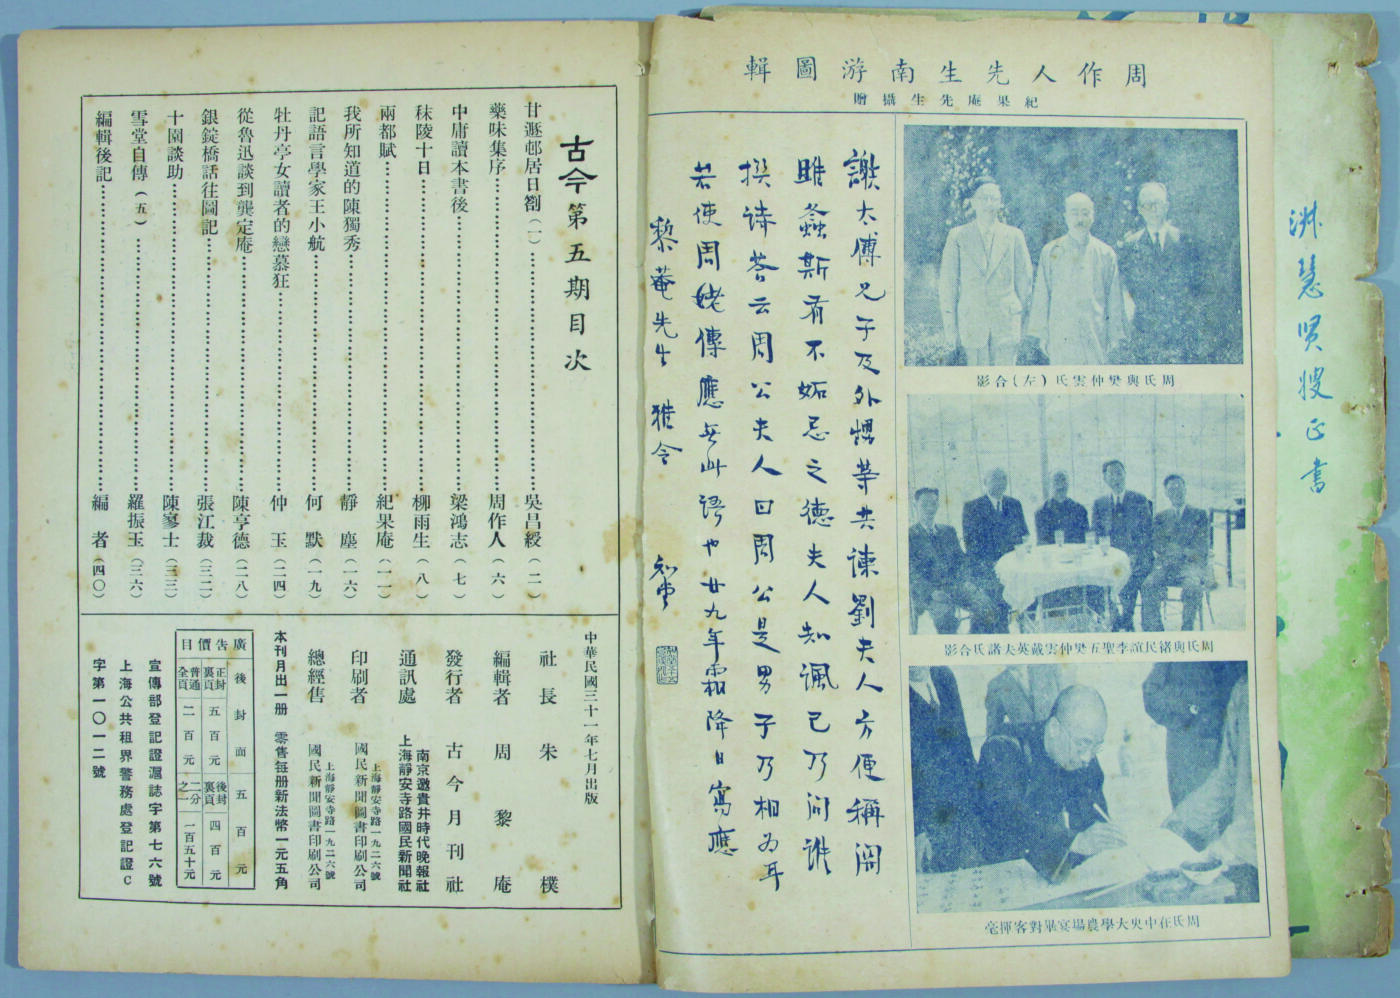 周作人先生南游圖輯
紀果庵先生攝贈
周氏與樊仲雲氏(左)合影
周氏與褚民誼李聖五樊仲雲戴英夫諸氏合影
周氏在中央大學農場宴畢對客揮毫
謝太傅兄子及外甥等共諫劉夫人方便稱關
雎螽斯有不妬忌之德夫人知諷己乃问誰
撰诗荅云周公夫人曰周公是男子乃相为耳
若使周姥傳應無此語也廿九年霜降日寫應
黎菴先生雅令
知堂
淋慧賢嫂正書
古今第五期目次
甘遯邨居日劄(一)……吳昌綬(二)
藥味集序……周作人(六)
中庸讀本書後……梁鴻志(七)
秣陵十日……柳雨生(八)
兩都賦……紀果庵(一一)
我所知道的陳獨秀……靜塵(一六)
記語言學家王小航……何默(一九)
牡丹亭女讀者的戀慕狂……仲玉(二四)
從魯迅談到龔定庵……陳亨德(二八)
銀錠橋話往圖記……張江裁(三二)
十園談助……陳寥士(三三)
雪堂自傳(五)……羅振玉(三六)
編輯後記……編者(四〇)
中華民國三十一年七月出版
社長 朱樸
編輯者 周黎庵
發行者 古今月刊社
通訊處 南京邀貴井時代晚報社
上海靜安寺路國民新聞社
印刷者 上海靜安寺路一九二六號
國民新聞圖書印刷公司
總經售 上海靜安寺路一九二六號
國民新聞圖書印刷公司
本刊月出一册 零售每册新法幣一元五角
廣告價目
後封面 五百元
正封裏頁 五百元 後封裏頁 四百元
普通全頁 二百元 二分之一 一百五十元
宣傳部登記證滬誌字第七六號
上海公共租界警務處登記證C
字第一〇一二號